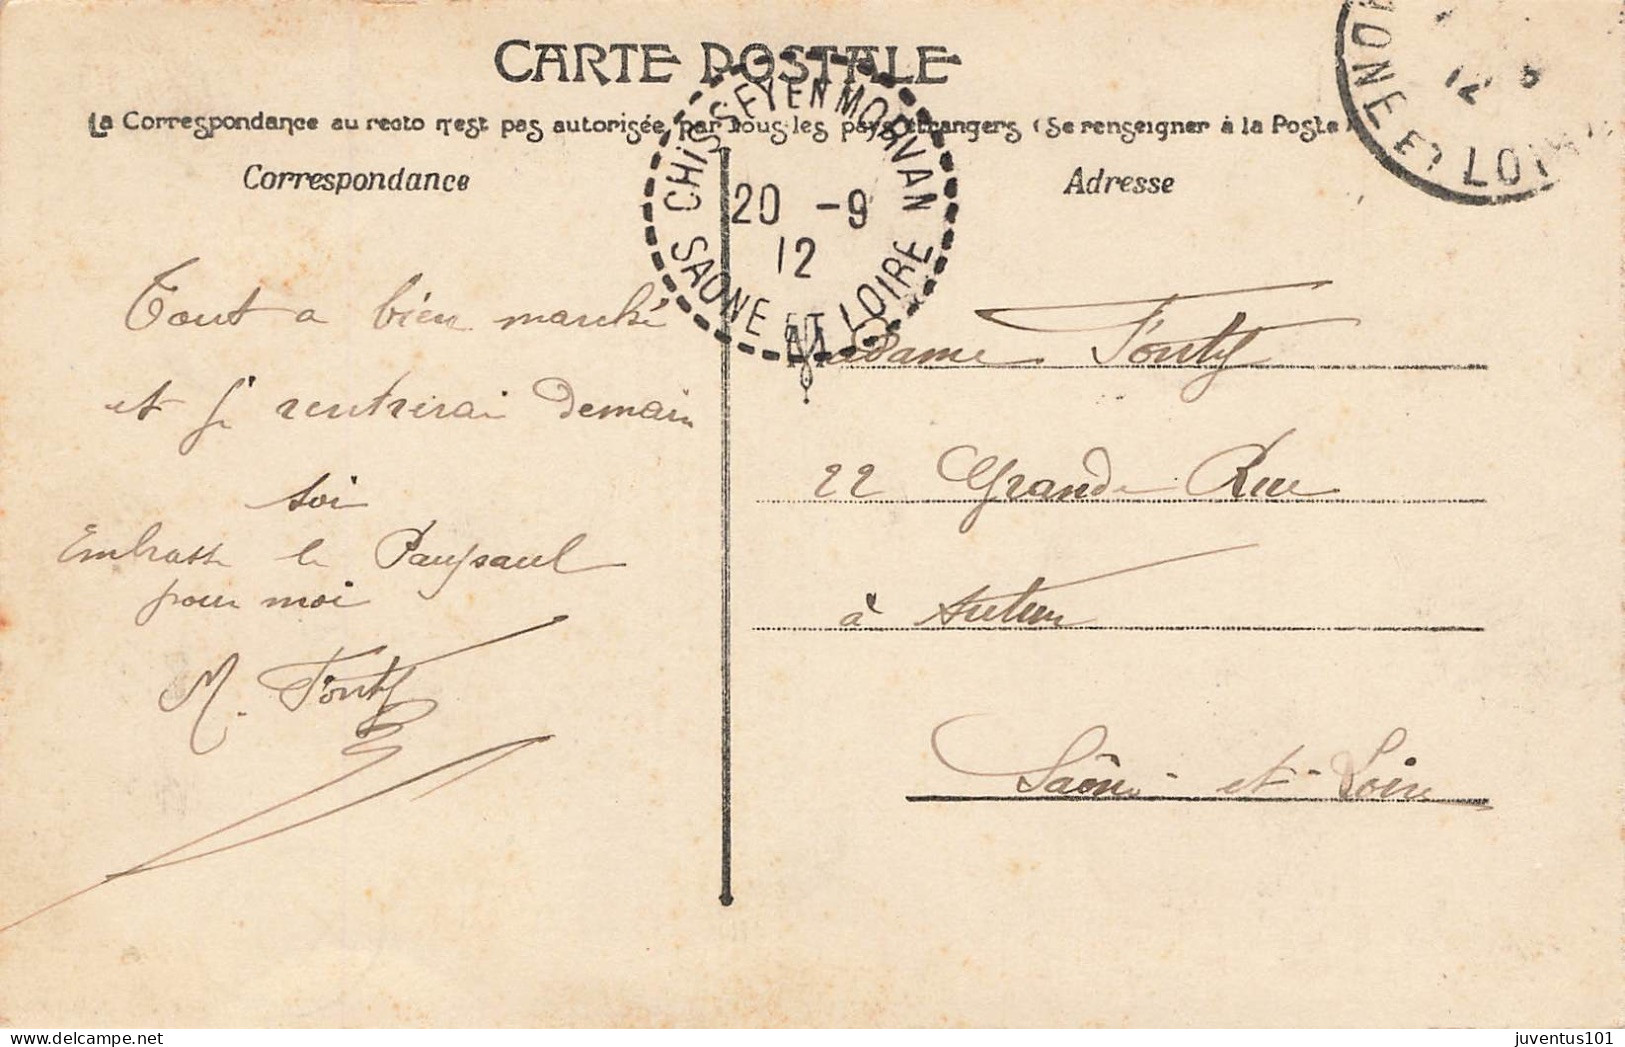 CARTE POSTALE
La Correspondance au recto n'est pas autorisée par tous les pays étrangers (Se renseigner à la Poste)
Correspondance
Adresse
CHISSEY EN MORVAN
20 -9
12
SAONE ET LOIRE
12
ONE & LOI
Tout a bien marché
et je rentrerai demain
soi
Embrasse le
pour moi
M. Fonty
Madame Fonty
22 Grande Rue
à Autun
Saône-et-Loire
juventus101